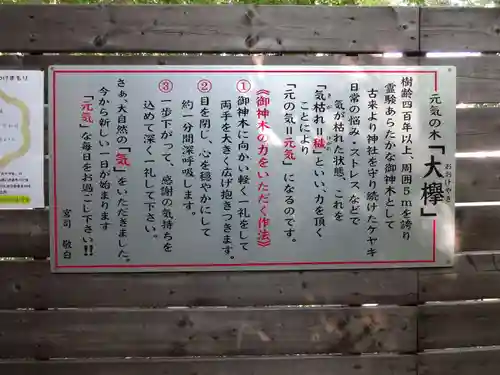 元気の木「大欅」
おおけやき
樹齢四百年以上、周囲5mを誇り
霊験あらたかな御神木として
古来より神社を守り続けたケヤキ
日常の悩み・ストレスなどで
気が枯れた状態、これを
「気枯れ＝穢」といい、力を頂く
ことにより
「元の気＝元気」になるのです。
《御神木の力をいただく作法》
①御神木に向かい軽く一礼をして
両手を大きく広げ抱きつきます。
②目を閉じ、心を穏やかにして
約一分間深呼吸します。
③一歩下がって、感謝の気持ちを
込めて深く一礼して下さい。
さぁ、大自然の「気」をいただきました。
今から新しい一日が始まります
「元気」な毎日をお過ごし下さい!!
宮司 敬白